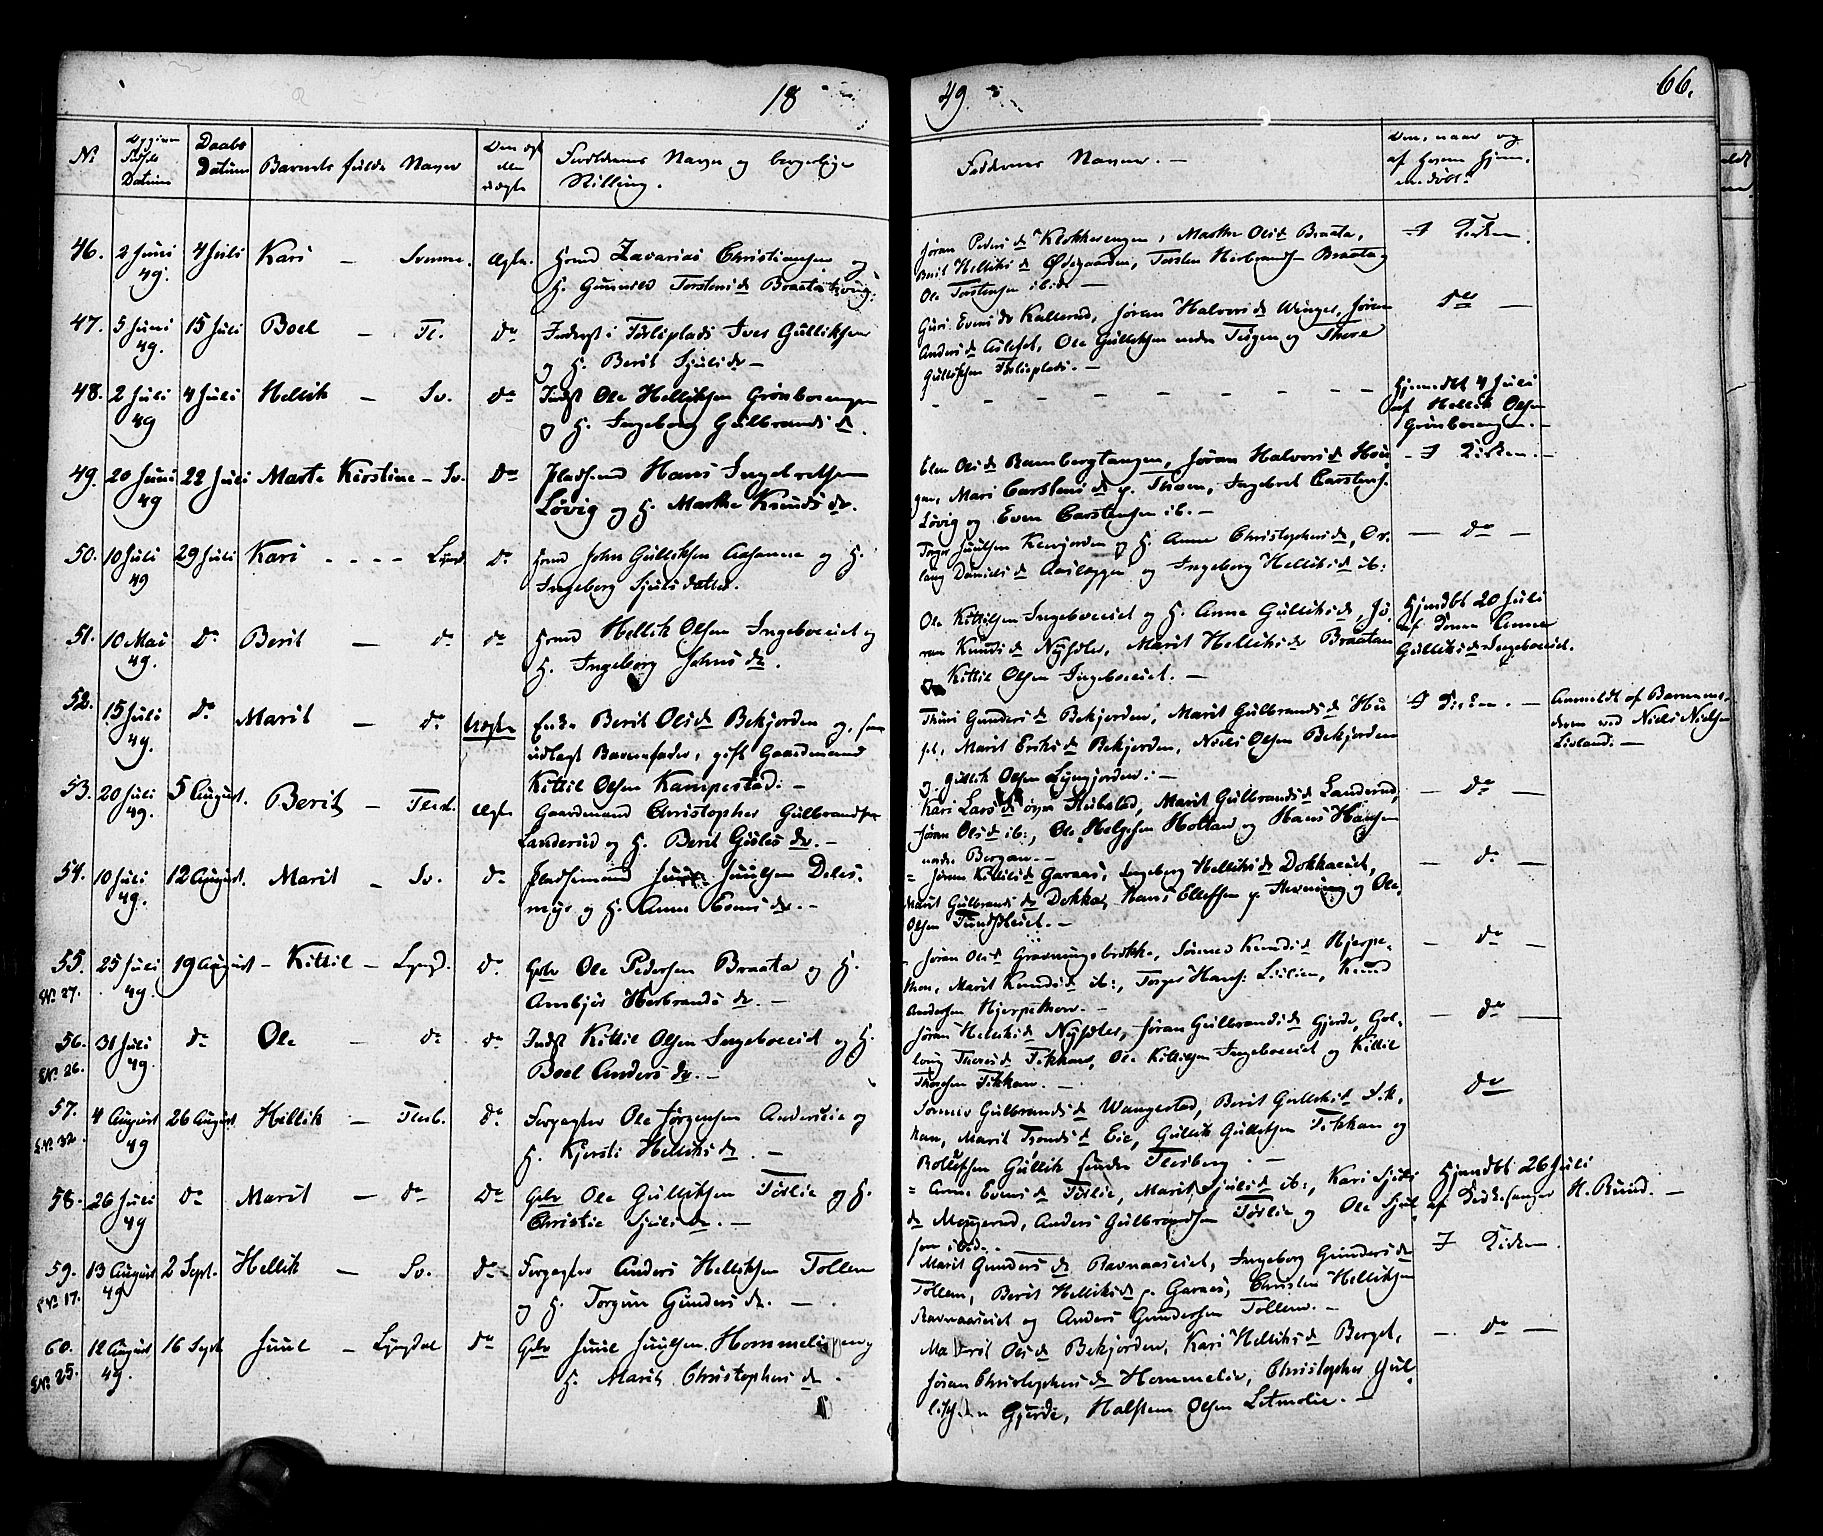 18
49.
66.
No
Opgiven Fødsels Datum
Daabs Datum
Barnets fulde Navn
Forældrenes Navn og borgerlige Stilling.
Faddernes Navne. —
Om, naar og af hvem hjemmedøbt
46. 2 Juni 49. 4 Juli Kari — Svenne. Ægte.
Zacarias Christiansen og
H. Gunnild Torstens d. Braata
Jøran Peders d. Klokkerengen, Marthe Ols d. Braata,
Berit Helliks d. Ødegaarden, Torsten Herbrandsen Braata og
Ole Torstensen ibid.
I Kirken.
47. 5 Juni 49. 15 Juli Boel — Fl. do
Inderst i Føsliplads Iver Gulliksen
og H. Berit Sjuls dr —
Guri Evens dr Kallerud, Jøran Halvors d. Winger, Jøran
Anders d. Aslefet, Ole Gulliksen nedre Teigen og Thore
Gulliksen Føslieplads. —
do —
48. 2 Juli 49 4 Juli Hellik — Sv. do
Indst Ole Helliksen Grønborengen
og H. Ingeborg Gulbrands d.
— — — — — — —
Hjemdbt 4 Juli
af Hellik Olsen
Grønborengen. —
49. 20 Juni 49 22 Juli Marte Kirstine — Sv. do
Pladsmd Hans Ingebretsen
Løvig og H. Marthe Knuds dr.
Elen Ols d. Rambergtangen, Jøran Halvors d.
Mari Carstens d. p. Thoen, Ingebret Carstens.
Løvig og Even Carstensen ib. —
— I Kirken. —
50. 10 Juli 49 29 Juli Kari - - - - Lyngd. do
Gmd John Gulliksen Aasanne og H.
Ingeborg Sjuls datter.
Torger Juulsen Kevjorden og H. Anne Christophers d.,
Daniels d. Aaslaggen og Ingeborg Helliks d. ib:
— do —
51. 10 Mai 49. do Berit — do do
Gmd Hellik Olsen Ingeboeiet og
H. Ingeborg Johns dr.
Ole Kittilsen Ingeboeiet og H. Anne Gulliks d., Jø-
ran Knuds d. Nysæter, Marit Helliks d. Braatan
og Kittil Olsen Ingeboeiet. —
Hjemdbt 20 Juli
af Anne
Gulliks d. Ingeboeiet.
52. 15 Juli 49. do Marit — do Uægte
Enke Berit Ols d. Bekjorden og, som
udlagt Barnefader, gift Gaardmand
Kittil Olsen Kampestad. —
Thuri Gunders d. Bekjorden, Marit Gulbrands d.
Marit Eriks d. Bekjorden, Niels Olsen Bekjorden
og Gullik Olsen Lyngjorden. —
I Kirken. —
Anmeldt af Barnemo-
deren ved Niels Nielsen
Lisland. —
53. 20 Juli 49. 5 August. Berit — Flesb. Ægte
Gaardmand Christopher Gulbrandsen
Landerud og H. Berit Gisles dr. —
Kari Lars d. øvre Hubstad, Marit Gulbrands d. Landerud,
Jøran Ols d. ib:, Ole Helgesen Holtan og Hans Hansen
nedre Bergan. —
— do —
54. 10 Juli 49. 12 August. Marit — Sv. do
Pladsemand Juul Juulsen Deles-
myr og H. Anne Evens dr. —
Jøran Kittils d. Garaas, Ingeborg Helliks d. Dokkaeiet,
Marit Gulbrands d. Dokka, Hans Ellefsen p. Hevning og Ole
Olsen —
— do —
55. 25 Juli 49. 19 August — Kittil — Lyngd. do
No 27.
Gbr Ole Pedersen Braata og H.
Ambjør Herbrands dr. —
Jøran Ols d. Gravningsbrække, Sønnev Knuds d. Hjerpe-
thon, Marit Knuds d. ib:, Torger Hans. Lislien, Knud
Andersen Hjerpethon. —
— do —
56. 31 Juli 49. do Ole — do do
No 26.
Indst Kittil Olsen Ingeboeiet og H.
Boel Anders dr. —
Jøran Helliks d. Nysæter, Jøran Gulbrands d. Gjerde, Gol-
laug Thores d. Fekkan, Ole Kittilsen Ingeboeiet og Kittil
Thoresen Fikkan. —
— do —
57. 4 August 49 26 August Hellik — Flesb. do
No 32.
Forpagter Ole Jørgensen Anderslie og
H. Kjersti Helliks d. —
Sønnev Gulbrands d. Wangestad, Berit Gulliks d. Fik-
kan, Marit Tronds d. Eie, Gullik Gulliksen Fikkan og
Gullik søndre Flesberg. —
do
58. 26 Juli 49 do Marit — do do
Gbr Ole Gulliksen Føslie og H.
Christie Sjuls dr. —
Anne Evens d. Føslie, Marit Sjuls d. ib:, Kari Sjuls
d. Mogerud, Anders Gulbrandsen Føslie og Ole Sjul-
sen ibid. —
Hjemdbt 26 Juli
af Kirkesanger H. Rund. —
59. 13 August 49 2 Sept. Hellik — Sv. do
No 17.
Forpagter Anders Helliksen Tollem
og H. Torgun Gunders dr. —
Marit Gunders d. Ravnaaseiet, Ingeborg Gunders d.
Tollem, Berit Helliks d. p. Garaas, Christen Helliksen
Ravnaaseiet og Anders Gundersen Tollem. —
I Kirken
60. 12 August 49. 16 Sept. Juul — Lyngdal do
No 25.
Gbr Juul Juulsen Hommelien og
H. Marit Christophers d.
Marit Ols d. Bekjorden, Kari Helliks d. Berget,
Jøran Christophers d. Hommelie, Christopher Gul-
liksen Gjerde, Halsten Olsen Letmolie. —
— do —